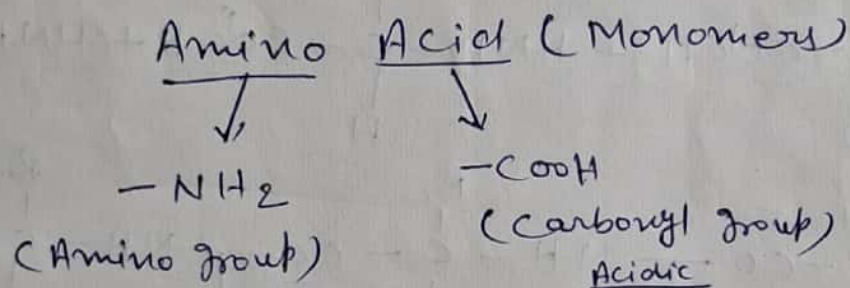 Amino Acid (Monomers)
-NH2
-COOH
(Amino group)
(Carboxyl group)
Acidic